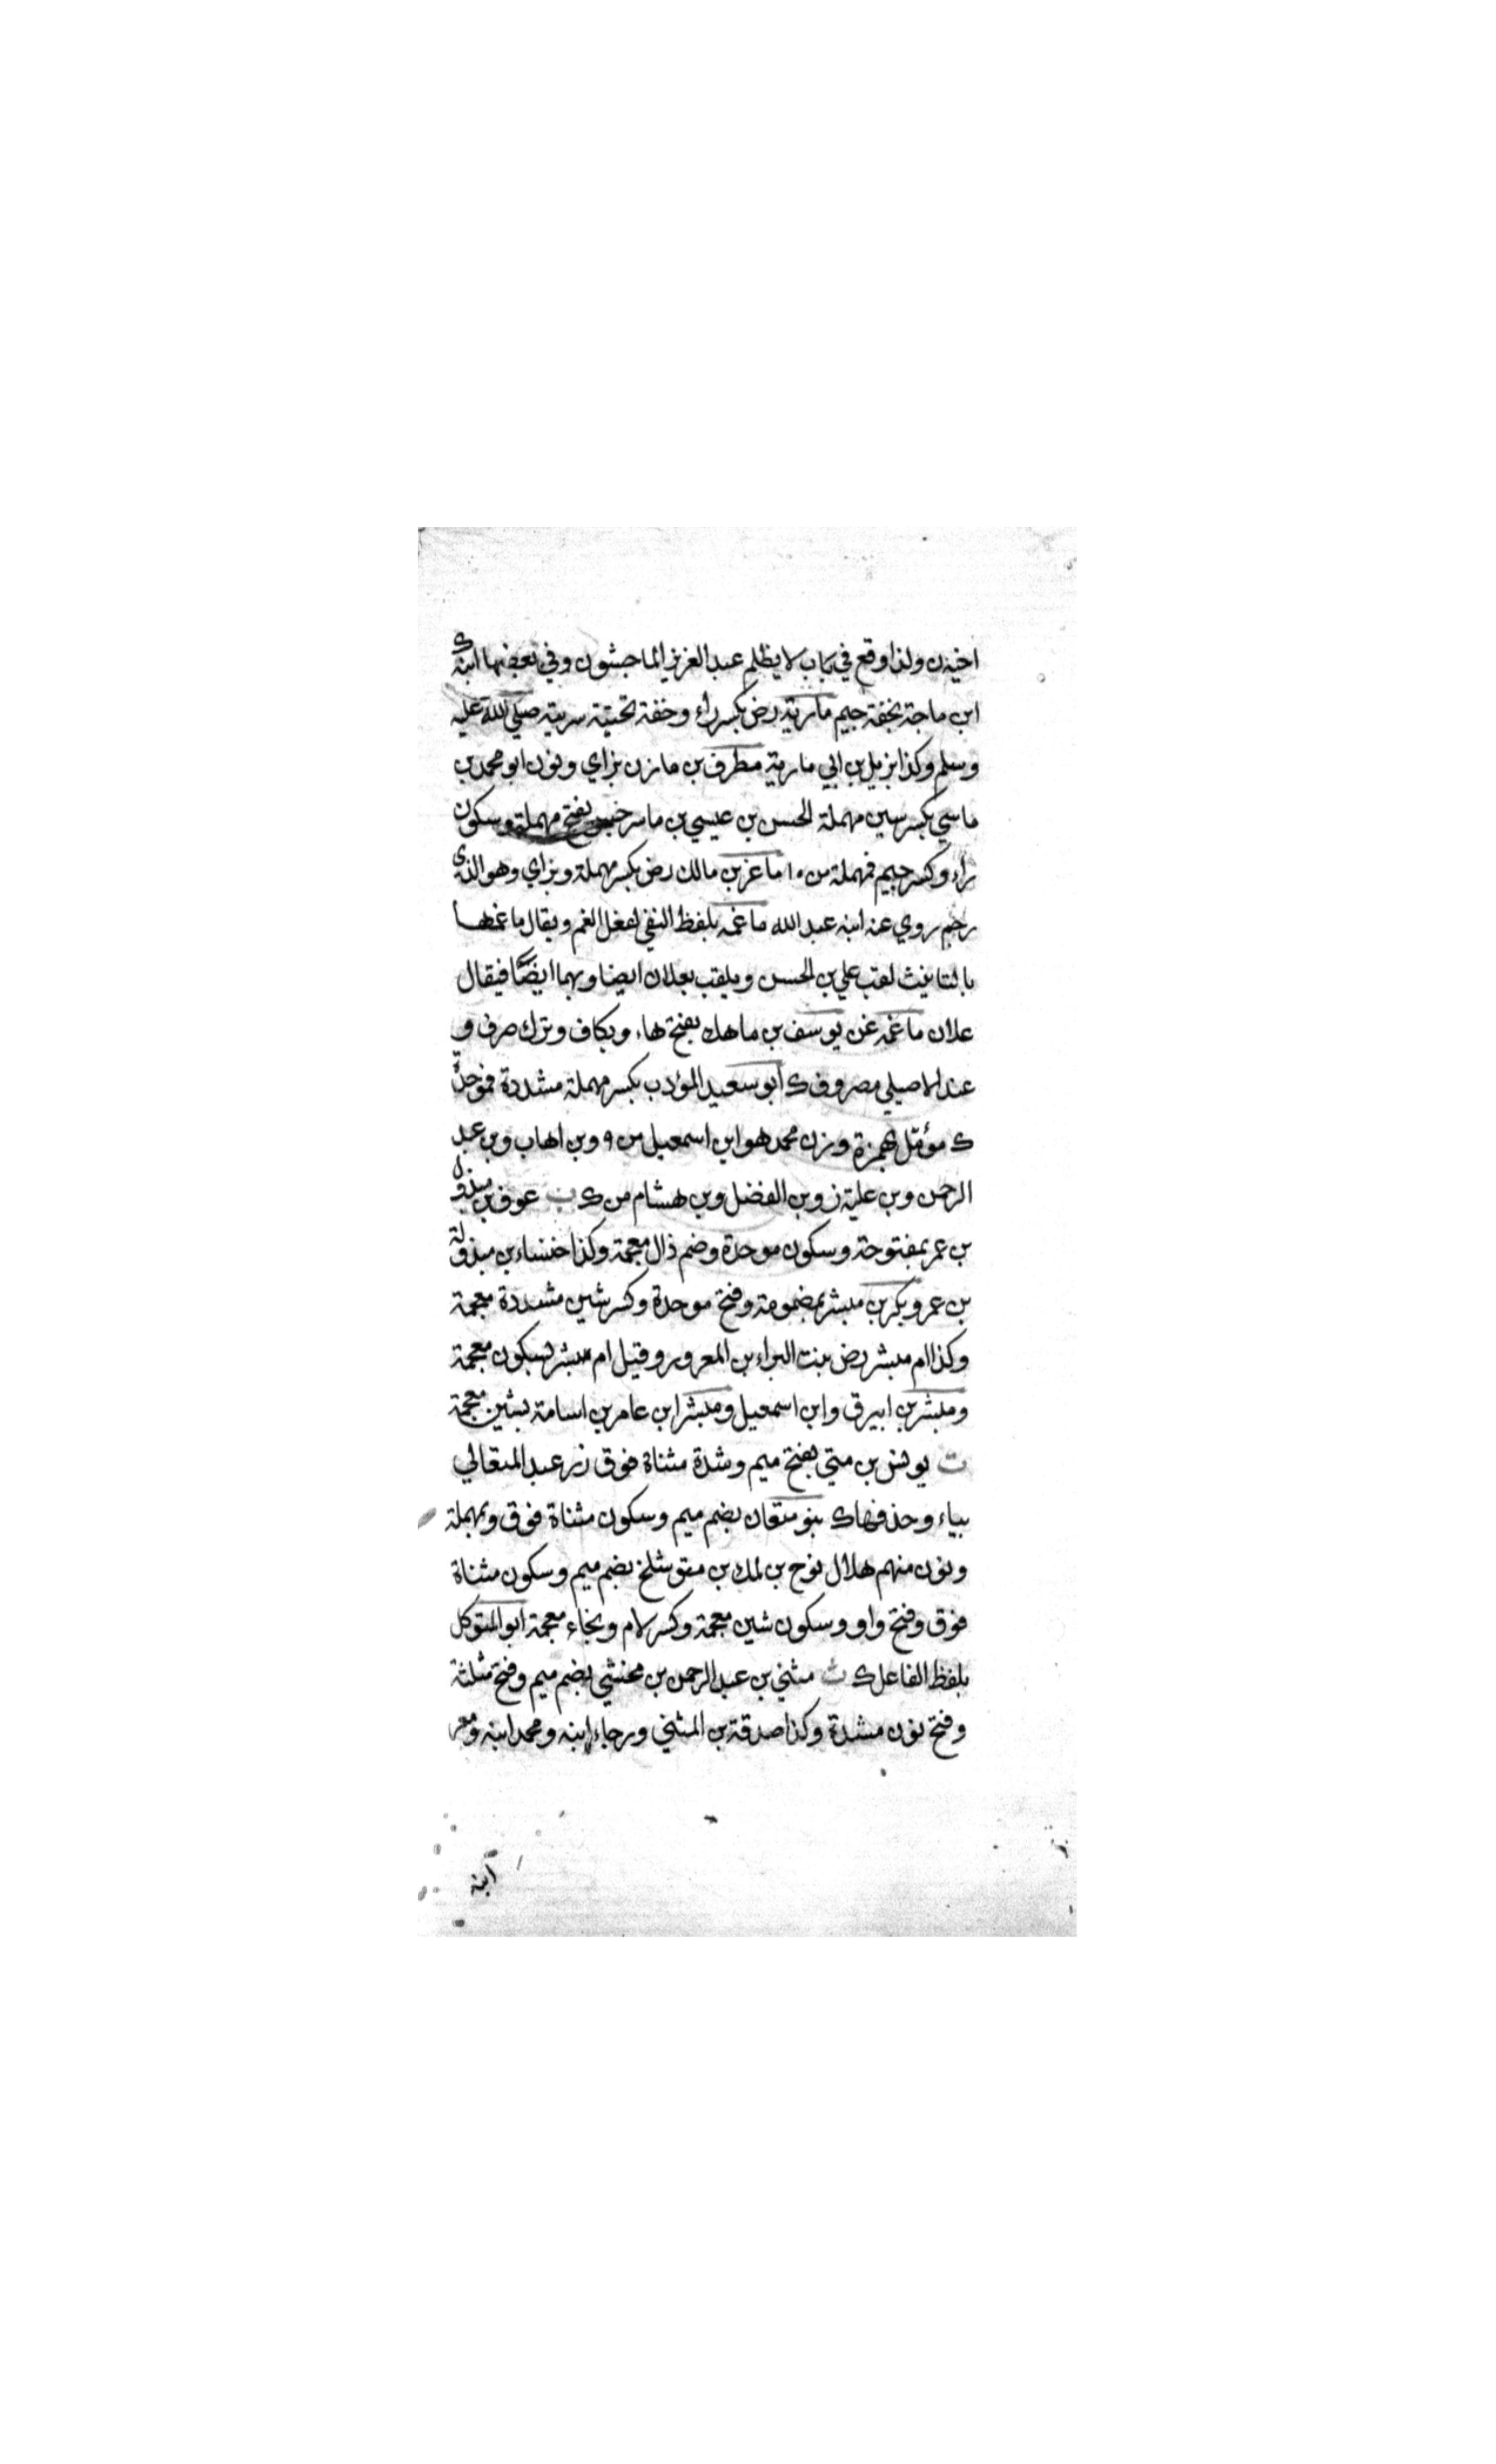 اخيه ن ولذا وقع في باب لا يظلم عبد العزيز الماجشون وفي بعضها ابنه ك
ابن ماجة بخفة جيم مارية رض بكسر راء وخفة تحتية سرية صلي الله عليه
وسلم وكذا بن ابي مارية مطرف بن مازن بزاي ونون ابو محمد بن
ماسي بكسر سين مهملة الحسن بن عيسي بن ماسرجس بفتح مهملة وسكون
راء وكسر جيم فمهملة من ١٠ ماعز بن مالك رض بكسر مهملة وبزاي وهو الذي
رجم روي عنه ابنه عبد الله ماغمه بلفظ النفي لفعل الغم ويقال ماغمها
بالتانيث لقب علي بن الحسن ويلقب بعلان ايضا وبهما ايضا فيقال
علان ماغمه غن يوسف بن ماهك بفتح هاء وبكاف وترك صرف و
عند الاصيلي مصروف ك ابو سعيد المؤدب بكسر مهملة مشددة فموحدة
ك مؤمل بهمزة وزن محمد هو ابن اسمعيل من ٩ وبن اهاب وبن عبد
الرحمن وبن علية ز وبن الفضل وبن هشام من ك ب عوف بن مبذول
بن عمر بمفتوحة وسكون موحدة وضم ذال معجمة وكذا خنساء بن مبذولة
بن عمرو بكر بن مبشر بمضمومة وفتح موحدة وكسر شين مشددة معجمة
وكذا ام مبشر رض بنت البراء بن المعرور وقيل ام مبشر بسكون معجمة
ومبشر بن ابيرق وابن اسمعيل ومبشر ابن عامر بن اسامة بشين معجمة
ت يونس بن متي بفتح ميم وشدة مثناة فوق زر عبد المتعالي
بياء وحذفها ك بنو متعان بضم ميم وسكون مثناة فوق وبمهملة
ونون منهم هلال نوح بن لمك بن متوشلخ بضم ميم وسكون مثناة
فوق وفتح واو وسكون شين معجمة وكسر لام وبخاء معجمة ابو المتوكل
بلفظ الفاعل ك ث مثني بن عبد الرحمن بن مخشي بضم ميم وفتح مثلثة
وفتح نون مشددة وكذا صدقة بن المثني ورجاء ابنه ومحمد ابنه ومعر
ابنه